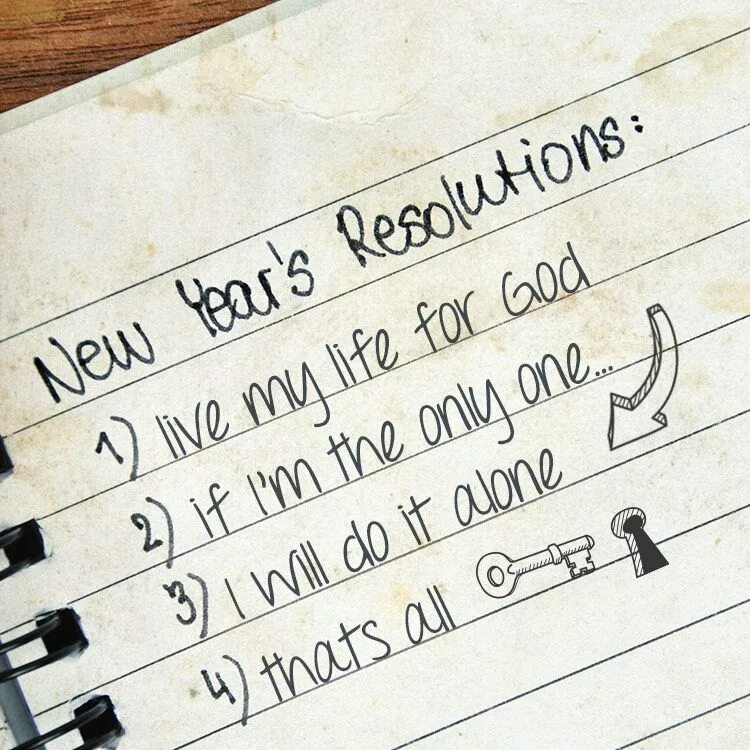 New Year's Resolutions:
1) live my life for God
2) if I'm the only one...
3) I will do it alone
4) thats all